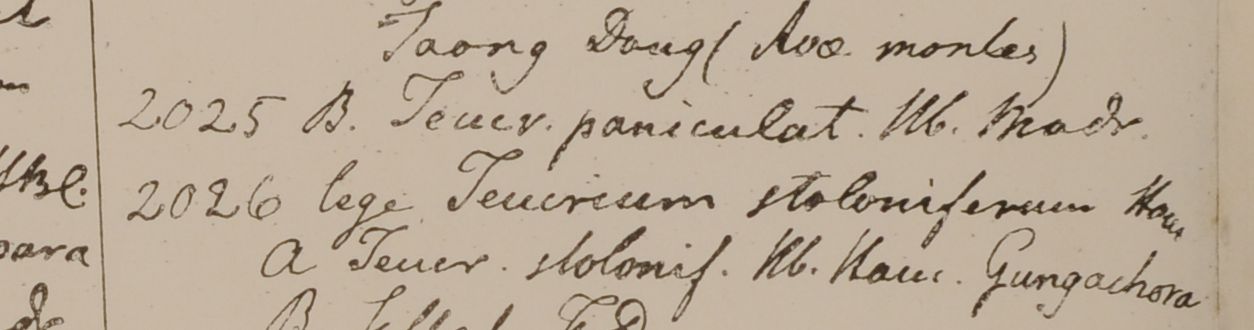 Taong Doug ( Avæ montes)
2025 B. Teucr. paniculat. Hb. Madr.
2026 lege Teucrium stoloniferum Ham
HBC.
para
a Teucr. stolonif. Hb. Ham. Gungachora
B.